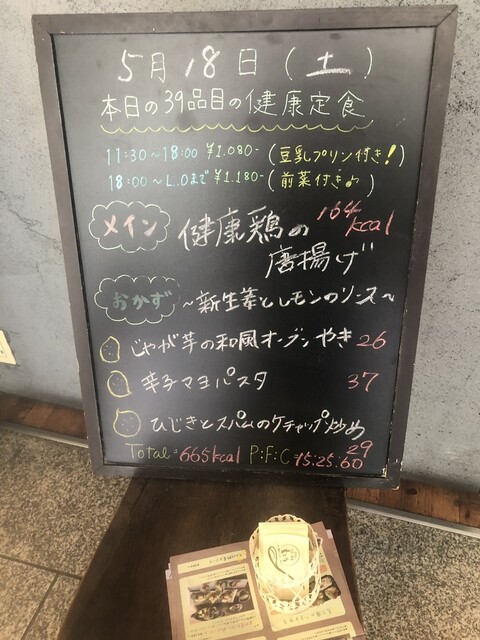 5月18日(土)
本日の39品目の健康定食
11:30〜18:00 ¥1.080-(豆乳プリン付き!)
18:00〜L.Oまで ¥1.180-(前菜付き♪)
メイン 健康鶏の 164kcal
唐揚げ
おかず 〜新生姜とレモンのソース〜
じゃが芋の和風オーブンやき 26
辛子マヨパスタ 37
ひじきとスパムのケチャップ炒め 29
Total=665kcal P:F:C=15:25:60